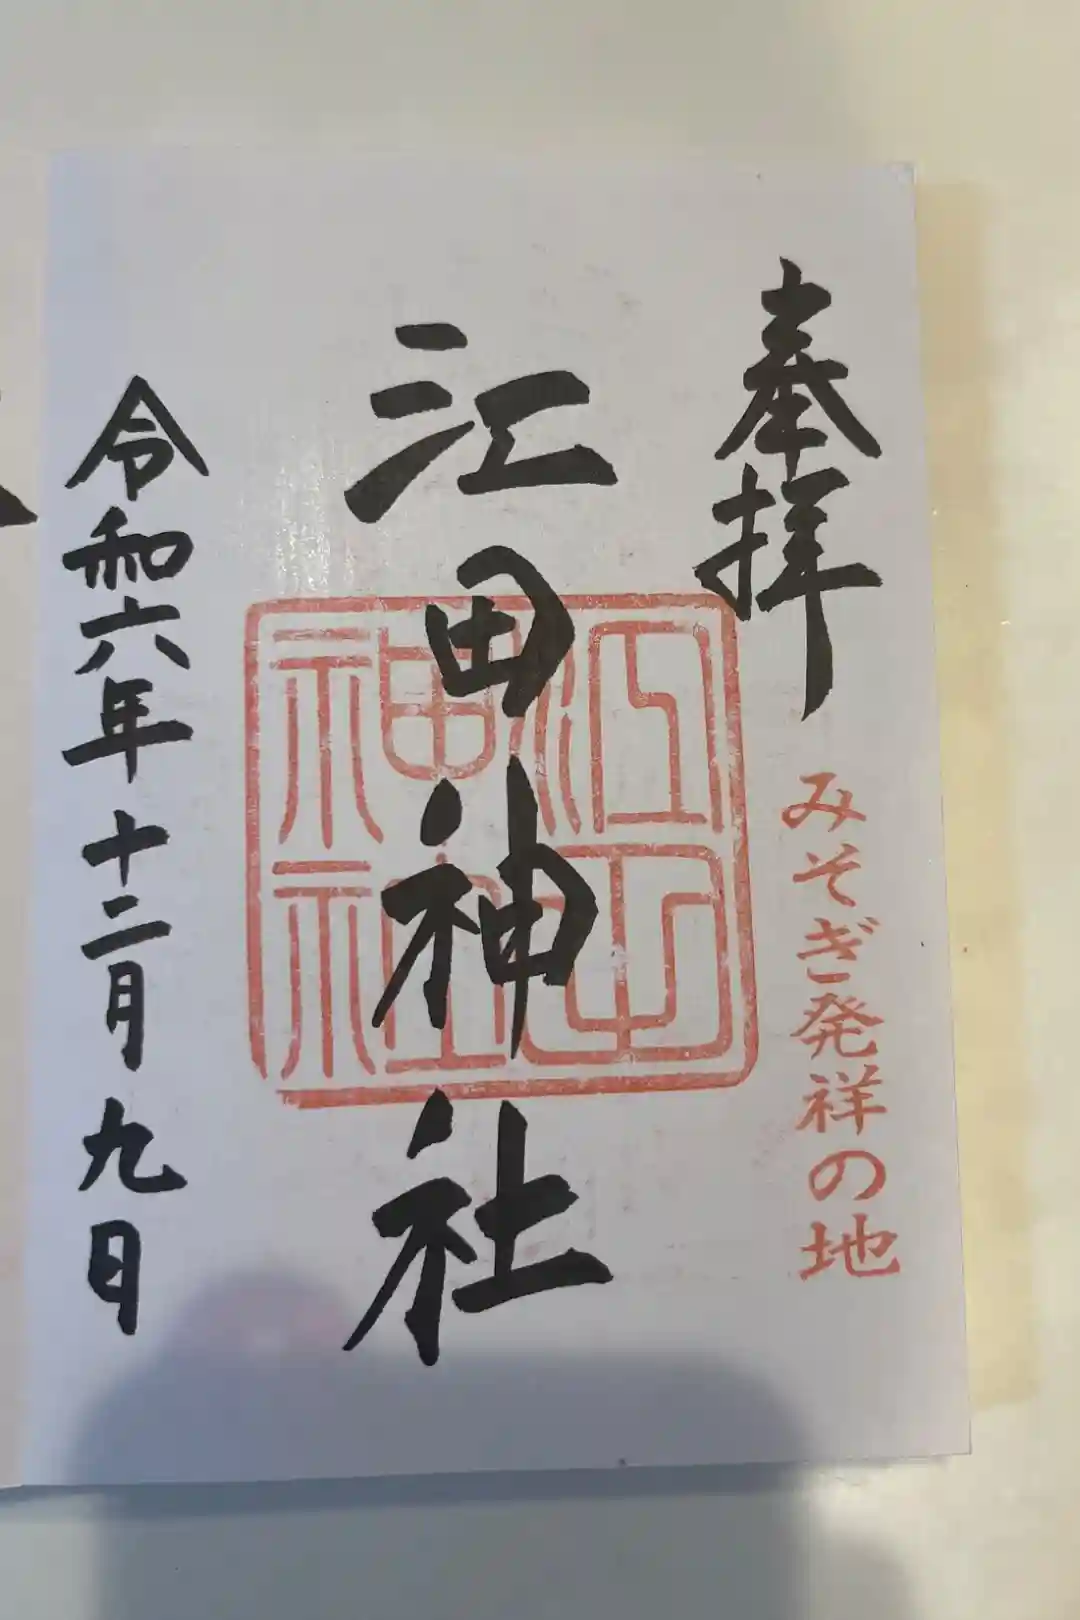 奉拝
みそぎ発祥の地
江田神社
江田神社
令和六年十二月九日